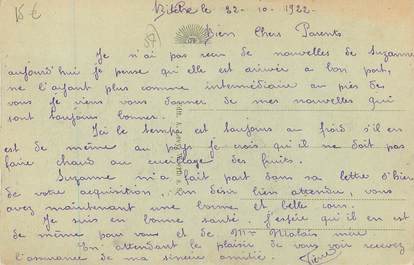 15 €
Bitche le 22-10-1922.
Bien Chers Parents
Je n'ai pas reçu de nouvelles de Suzanne
aujourd'hui je pense qu'elle est arrivée a bon port,
ne l'ayant plus comme intermédiaire au près de
vous je viens vous donner de mes nouvelles qui
sont toujours bonnes.
Ici le temps est toujours au froid s'il en
est de même au pays je crois qu'il ne doit pas
faire chaud au cueillage des fruits.
Suzanne m'a fait part dans sa lettre d'hier
de votre acquisition. Un désir bien attendu, vous
avez maintenant une bonne et belle
Je suis en bonne santé. J'espère qu'il en est
de même pour vous et de Mr
En attendant le plaisir de vous voir recevez
l'assurance de ma sincère amitié.